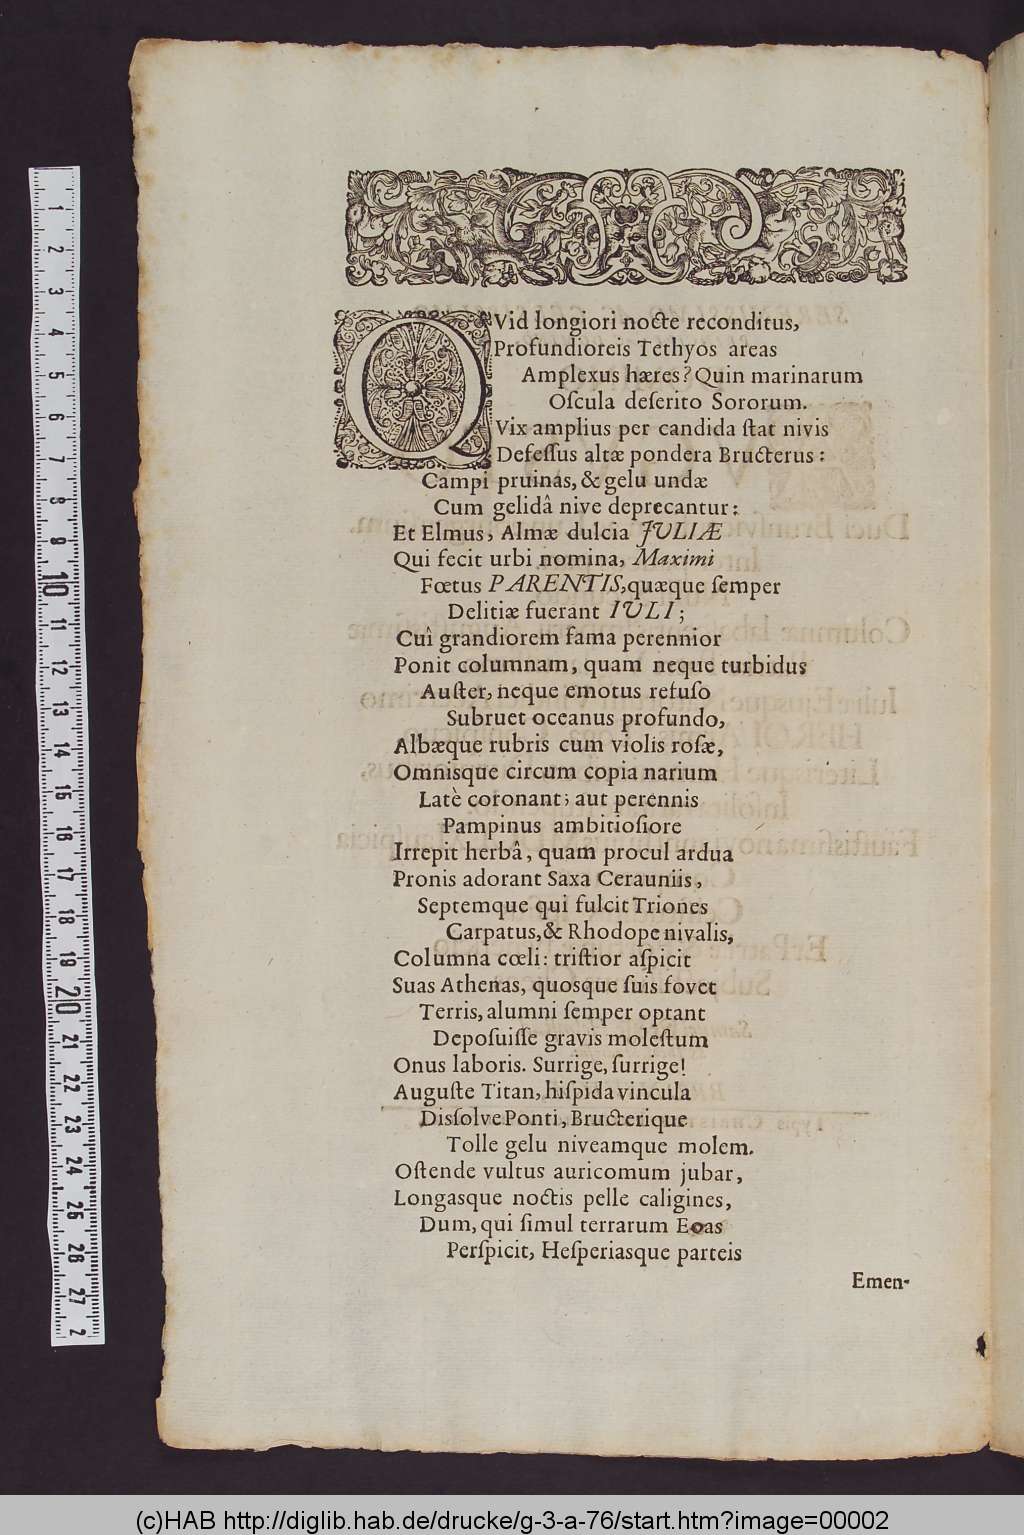 QVid longiori nocte reconditus,
Profundioreis Tethyos areas
Amplexus hæres? Quin marinarum
Oſcula deſerito Sororum.
Vix amplius per candida ſtat nivis
Defeſſus altæ pondera Bructerus:
Campi pruinas, & gelu undæ
Cum gelidâ nive deprecantur:
Et Elmus, Almæ dulcia JULIÆ
Qui fecit urbi nomina, Maximi
Fœtus PARENTIS, quæque ſemper
Delitiæ fuerant IULI;
Cuî grandiorem fama perennior
Ponit columnam, quam neque turbidus
Auſter, neque emotus refuſo
Subruet oceanus profundo,
Albæque rubris cum violis roſæ,
Omnisque circum copia narium
Latè coronant; aut perennis
Pampinus ambitioſiore
Irrepit herbâ, quam procul ardua
Pronis adorant Saxa Cerauniis,
Septemque qui fulcit Triones
Carpatus, & Rhodope nivalis,
Columna cœli: triſtior aſpicit
Suas Athenas, quosque ſuis fovet
Terris, alumni ſemper optant
Depoſuiſſe gravis moleſtum
Onus laboris. Surrige, ſurrige!
Auguſte Titan, hiſpida vincula
Diſſolve Ponti, Bructerique
Tolle gelu niveamque molem.
Oſtende vultus auricomum jubar,
Longasque noctis pelle caligines,
Dum, qui ſimul terrarum Eoas
Perſpicit, Heſperiasque parteis
Emen-
1
2
3
4
5
6
7
8
9
10
11
12
13
14
15
16
17
18
19
20
21
22
23
24
25
26
27
2
(c)HAB http://diglib.hab.de/drucke/g-3-a-76/start.htm?image=00002